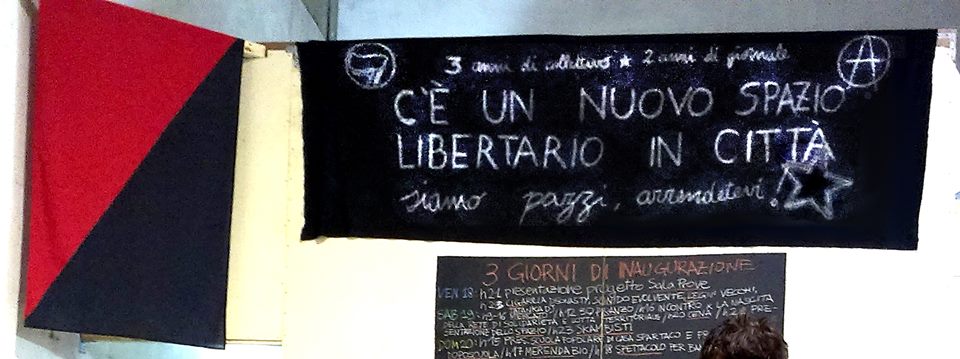 3 anni di collettivo ★ 2 anni di giornale
C'È UN NUOVO SPAZIO
LIBERTARIO IN CITTÀ
siamo pazzi, arrendetevi!
A
3 GIORNI DI INAUGURAZIONE
VEN 18: h21 presentazione progetto Sala Prove
h23 EVOLVENTE, VECCHI,
SAB 19: PRANZO / h16 INCONTRO LA NASCITA
DELLA RETE DI SOLIDARIETÀ E LOTTA TERRITORIALE / h20 CENA / PRE-
SENTAZIONE DELLO SPAZIO / h23 SKA BISTI
DOM 20: h15 SCUOLA POPOLARE DI CASA SPARTACO E
DOPOSCUOLA / h17 MERENDA BIO / h18 SPETTACOLO PER